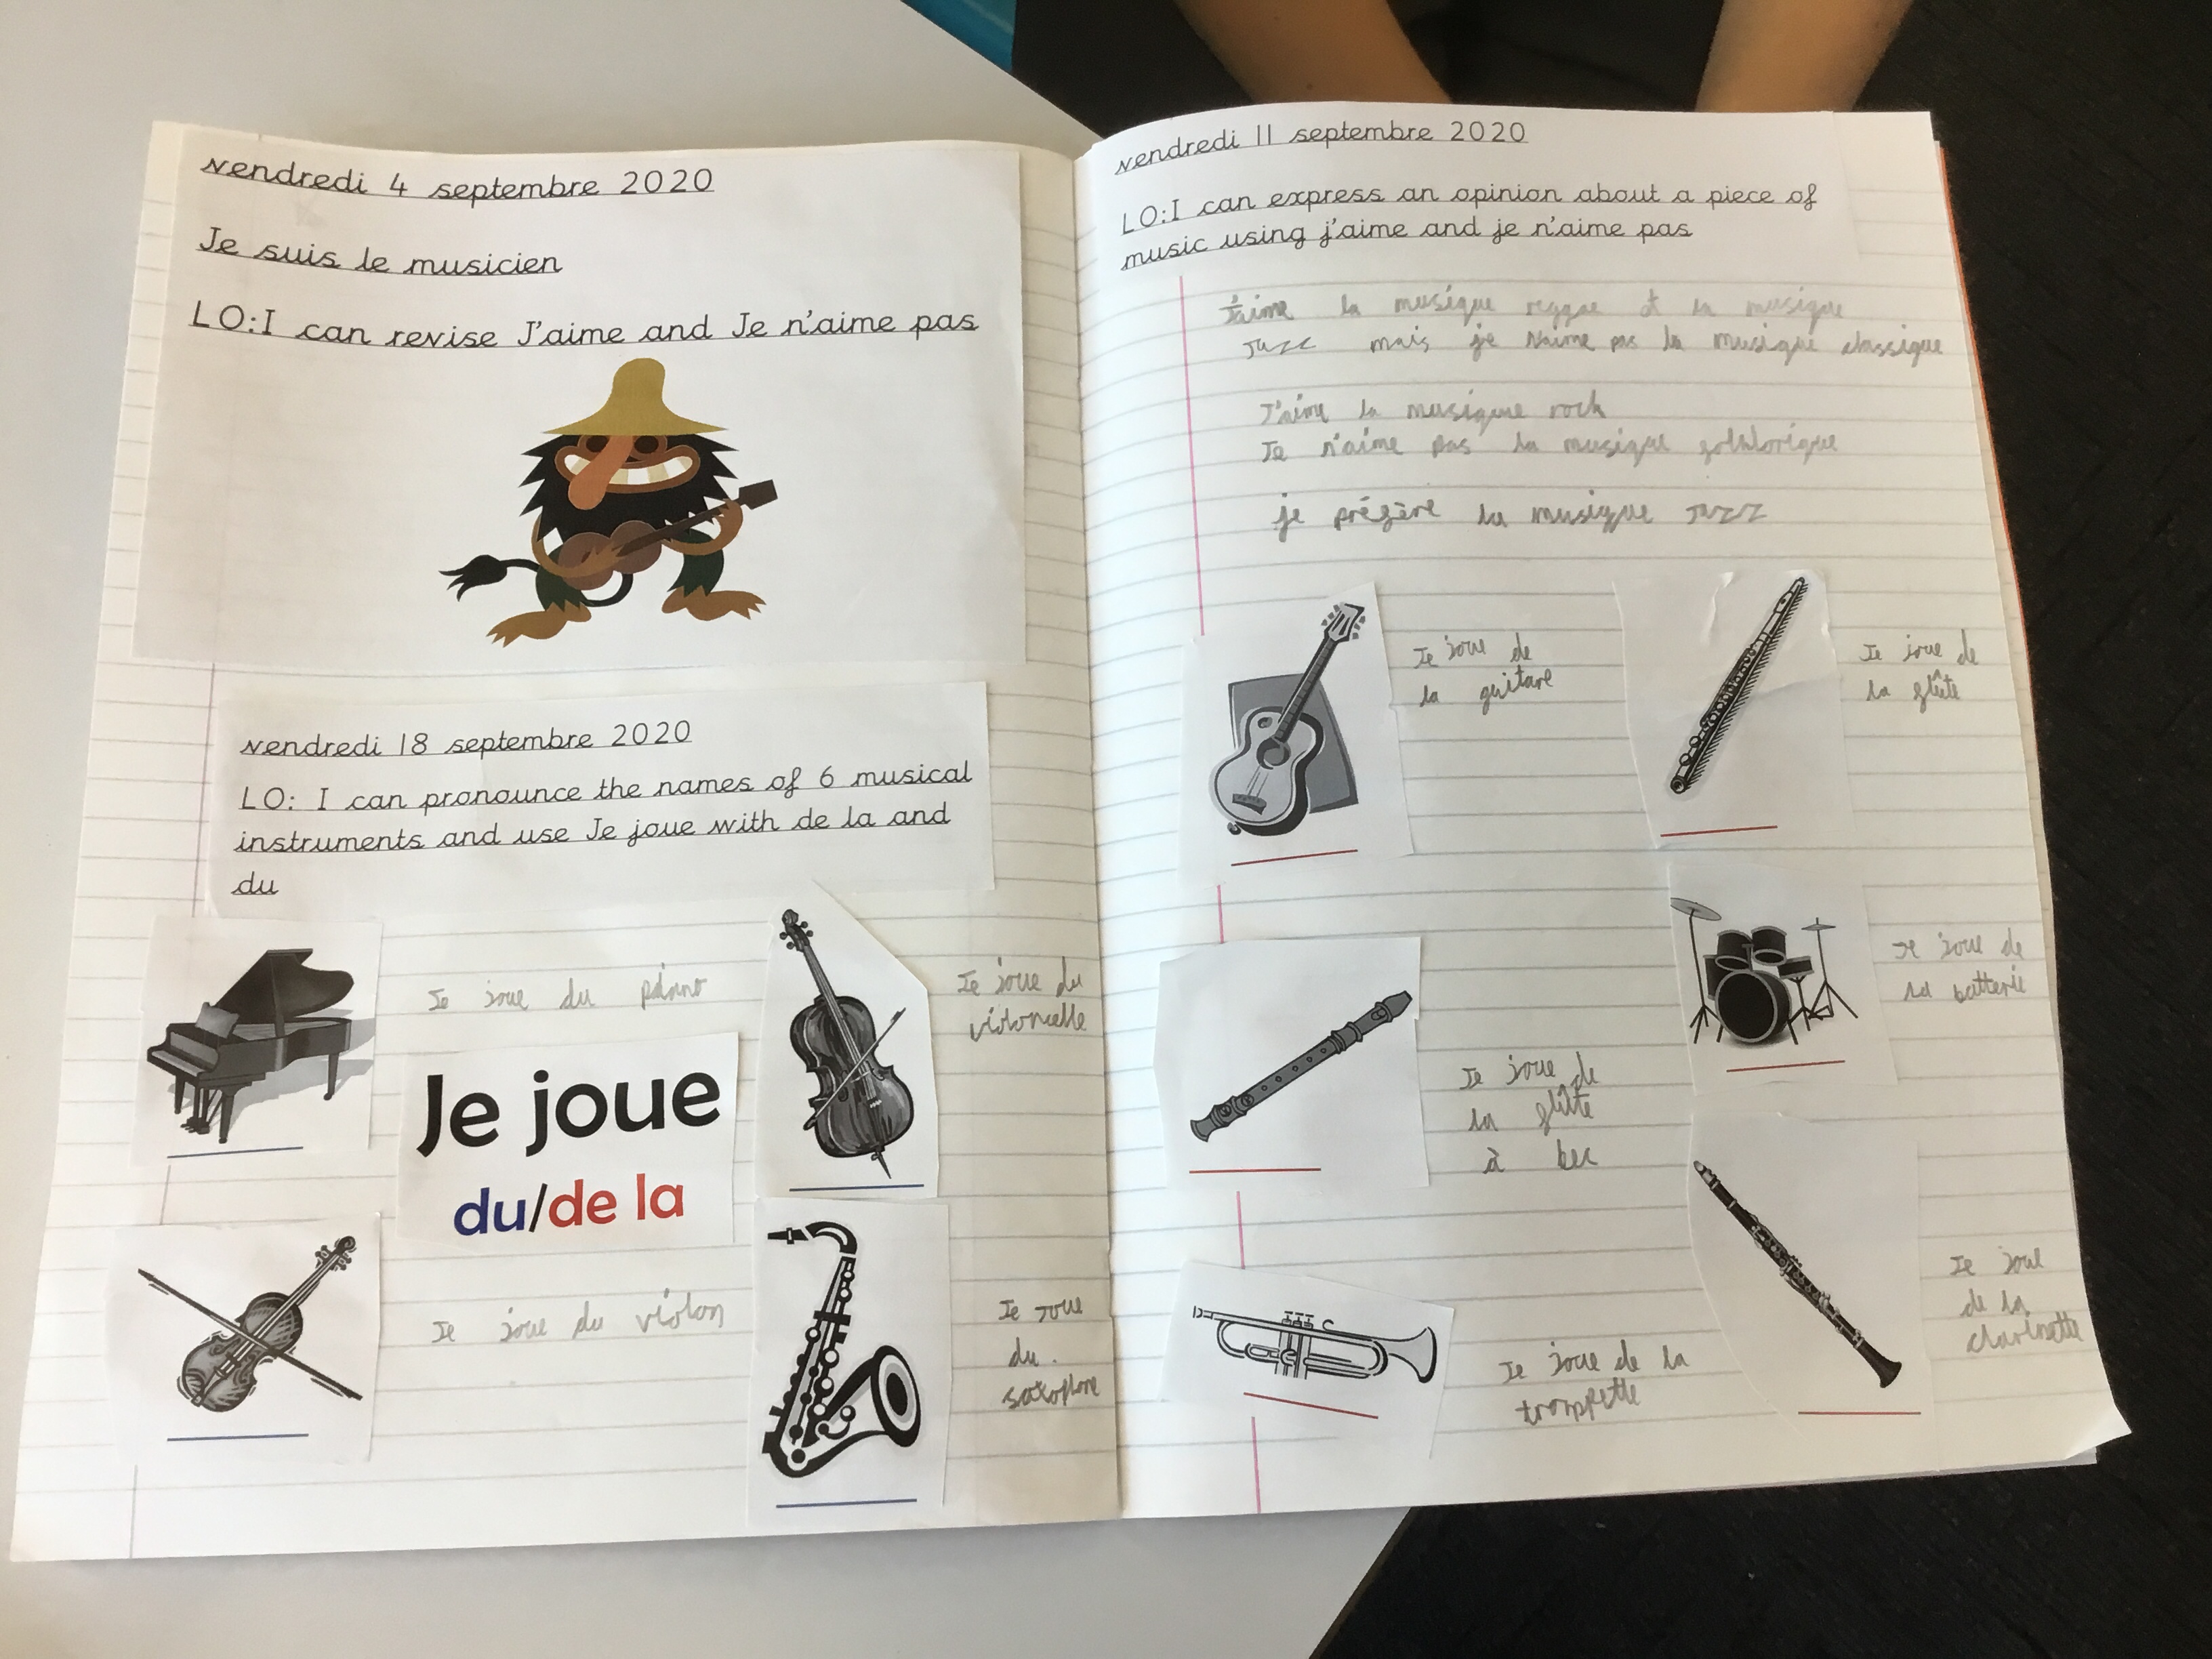 vendredi 4 septembre 2020
Je suis le musicien
LO:I can revise J'aime and Je n'aime pas
vendredi 18 septembre 2020
LO: I can pronounce the names of 6 musical
instruments and use Je joue with de la and
du
Je joue du piano
Je joue du
violoncelle
Je joue
du/de la
Je joue du violon
Je joue
du.
saxophone
vendredi 11 septembre 2020
LO:I can express an opinion about a piece of
music using j'aime and je n'aime pas
J'aime la musique reggae et la musique
Jazz mais je n'aime pas la musique classique
J'aime la musique rock
Je n'aime pas la musique folklorique
je préfère la musique Jazz
Je joue de
la guitare
Je joue de
la flûte
Je joue de
la flûte
à bec
Je joue de
la batterie
Je joue de la
trompette
Je joue
de la
clarinette